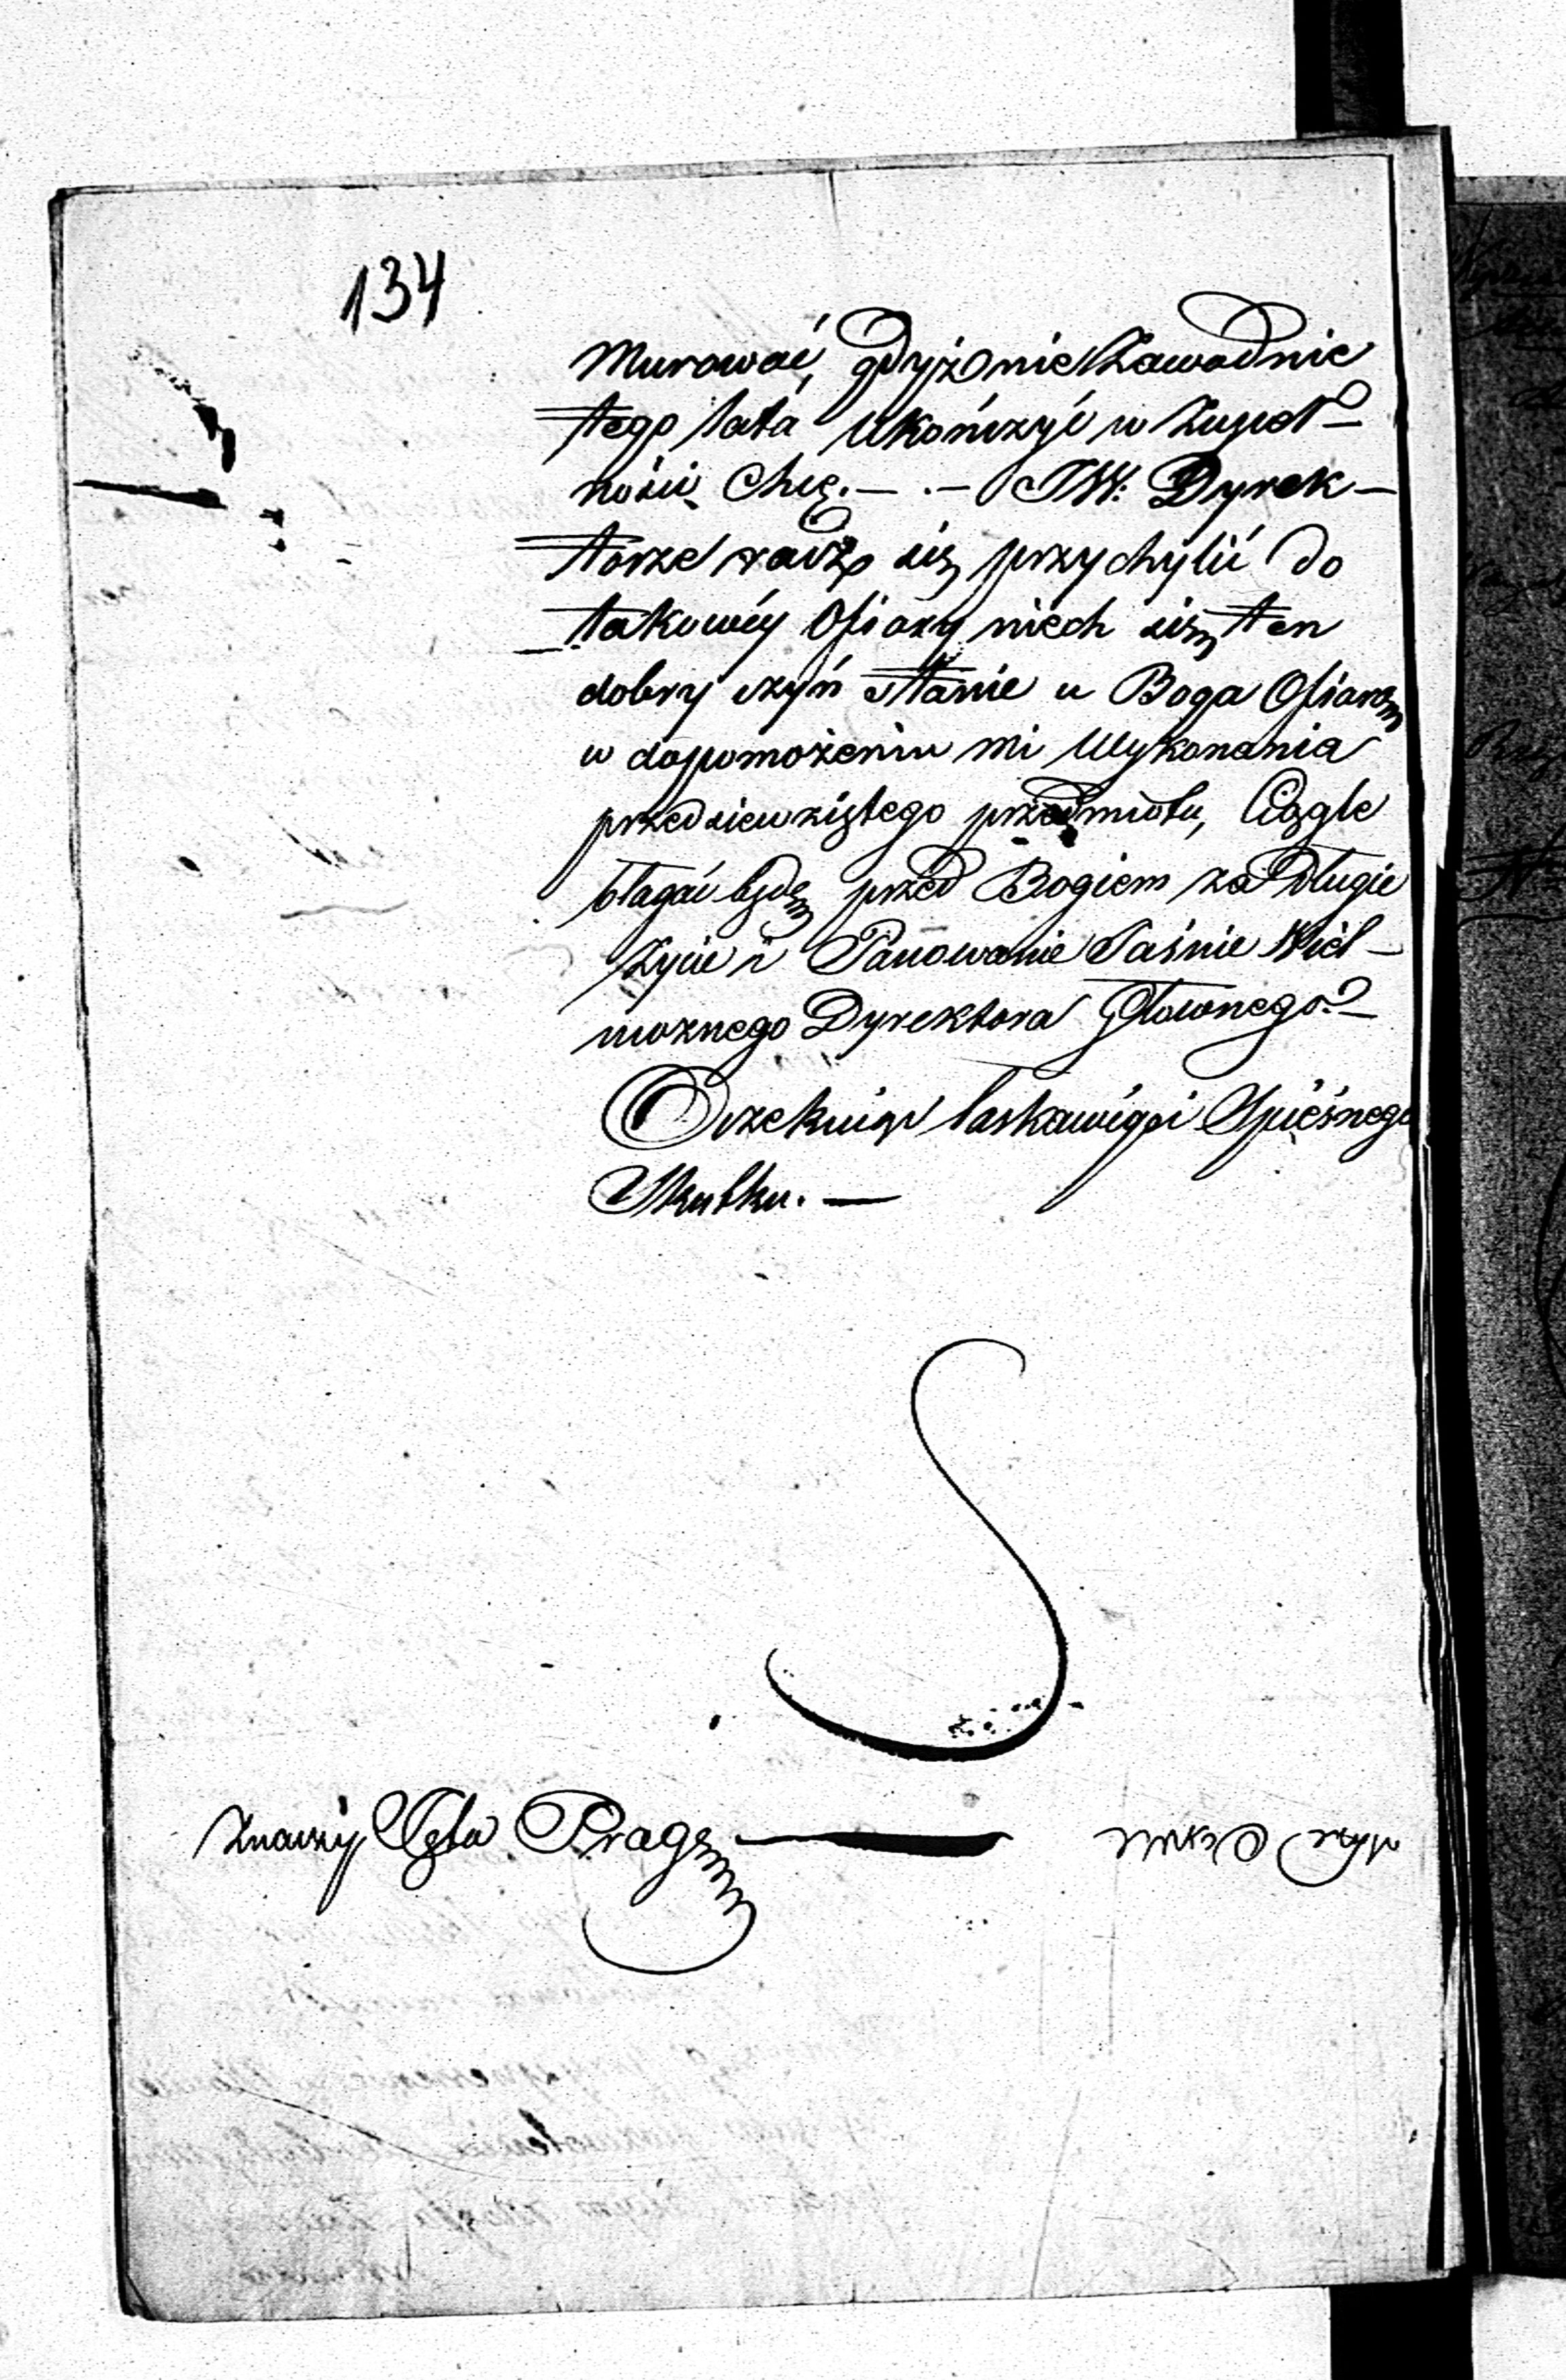 134
Murować, gdyż nie Zawodnie
tego lata Ukończyć w Zupeł-
ności Chcę. — . — JW: Dyrek-
torze racz się przychylić do
takowéy Ofiary niech się ten
dobry czyń stanie u Boga Ofiarą
w dopomożeniu mi Wykonania
przedsiewziętego przedmiotu, Ciągle
błagać będę przed Bogiem za długie
Życie i Panowanie Jaśnie Wiel-
możnego Dyrektora Głownego. —
Oczekuię łaskawégo i Spieśnego
Skutku. —
Znaiący Pragę —